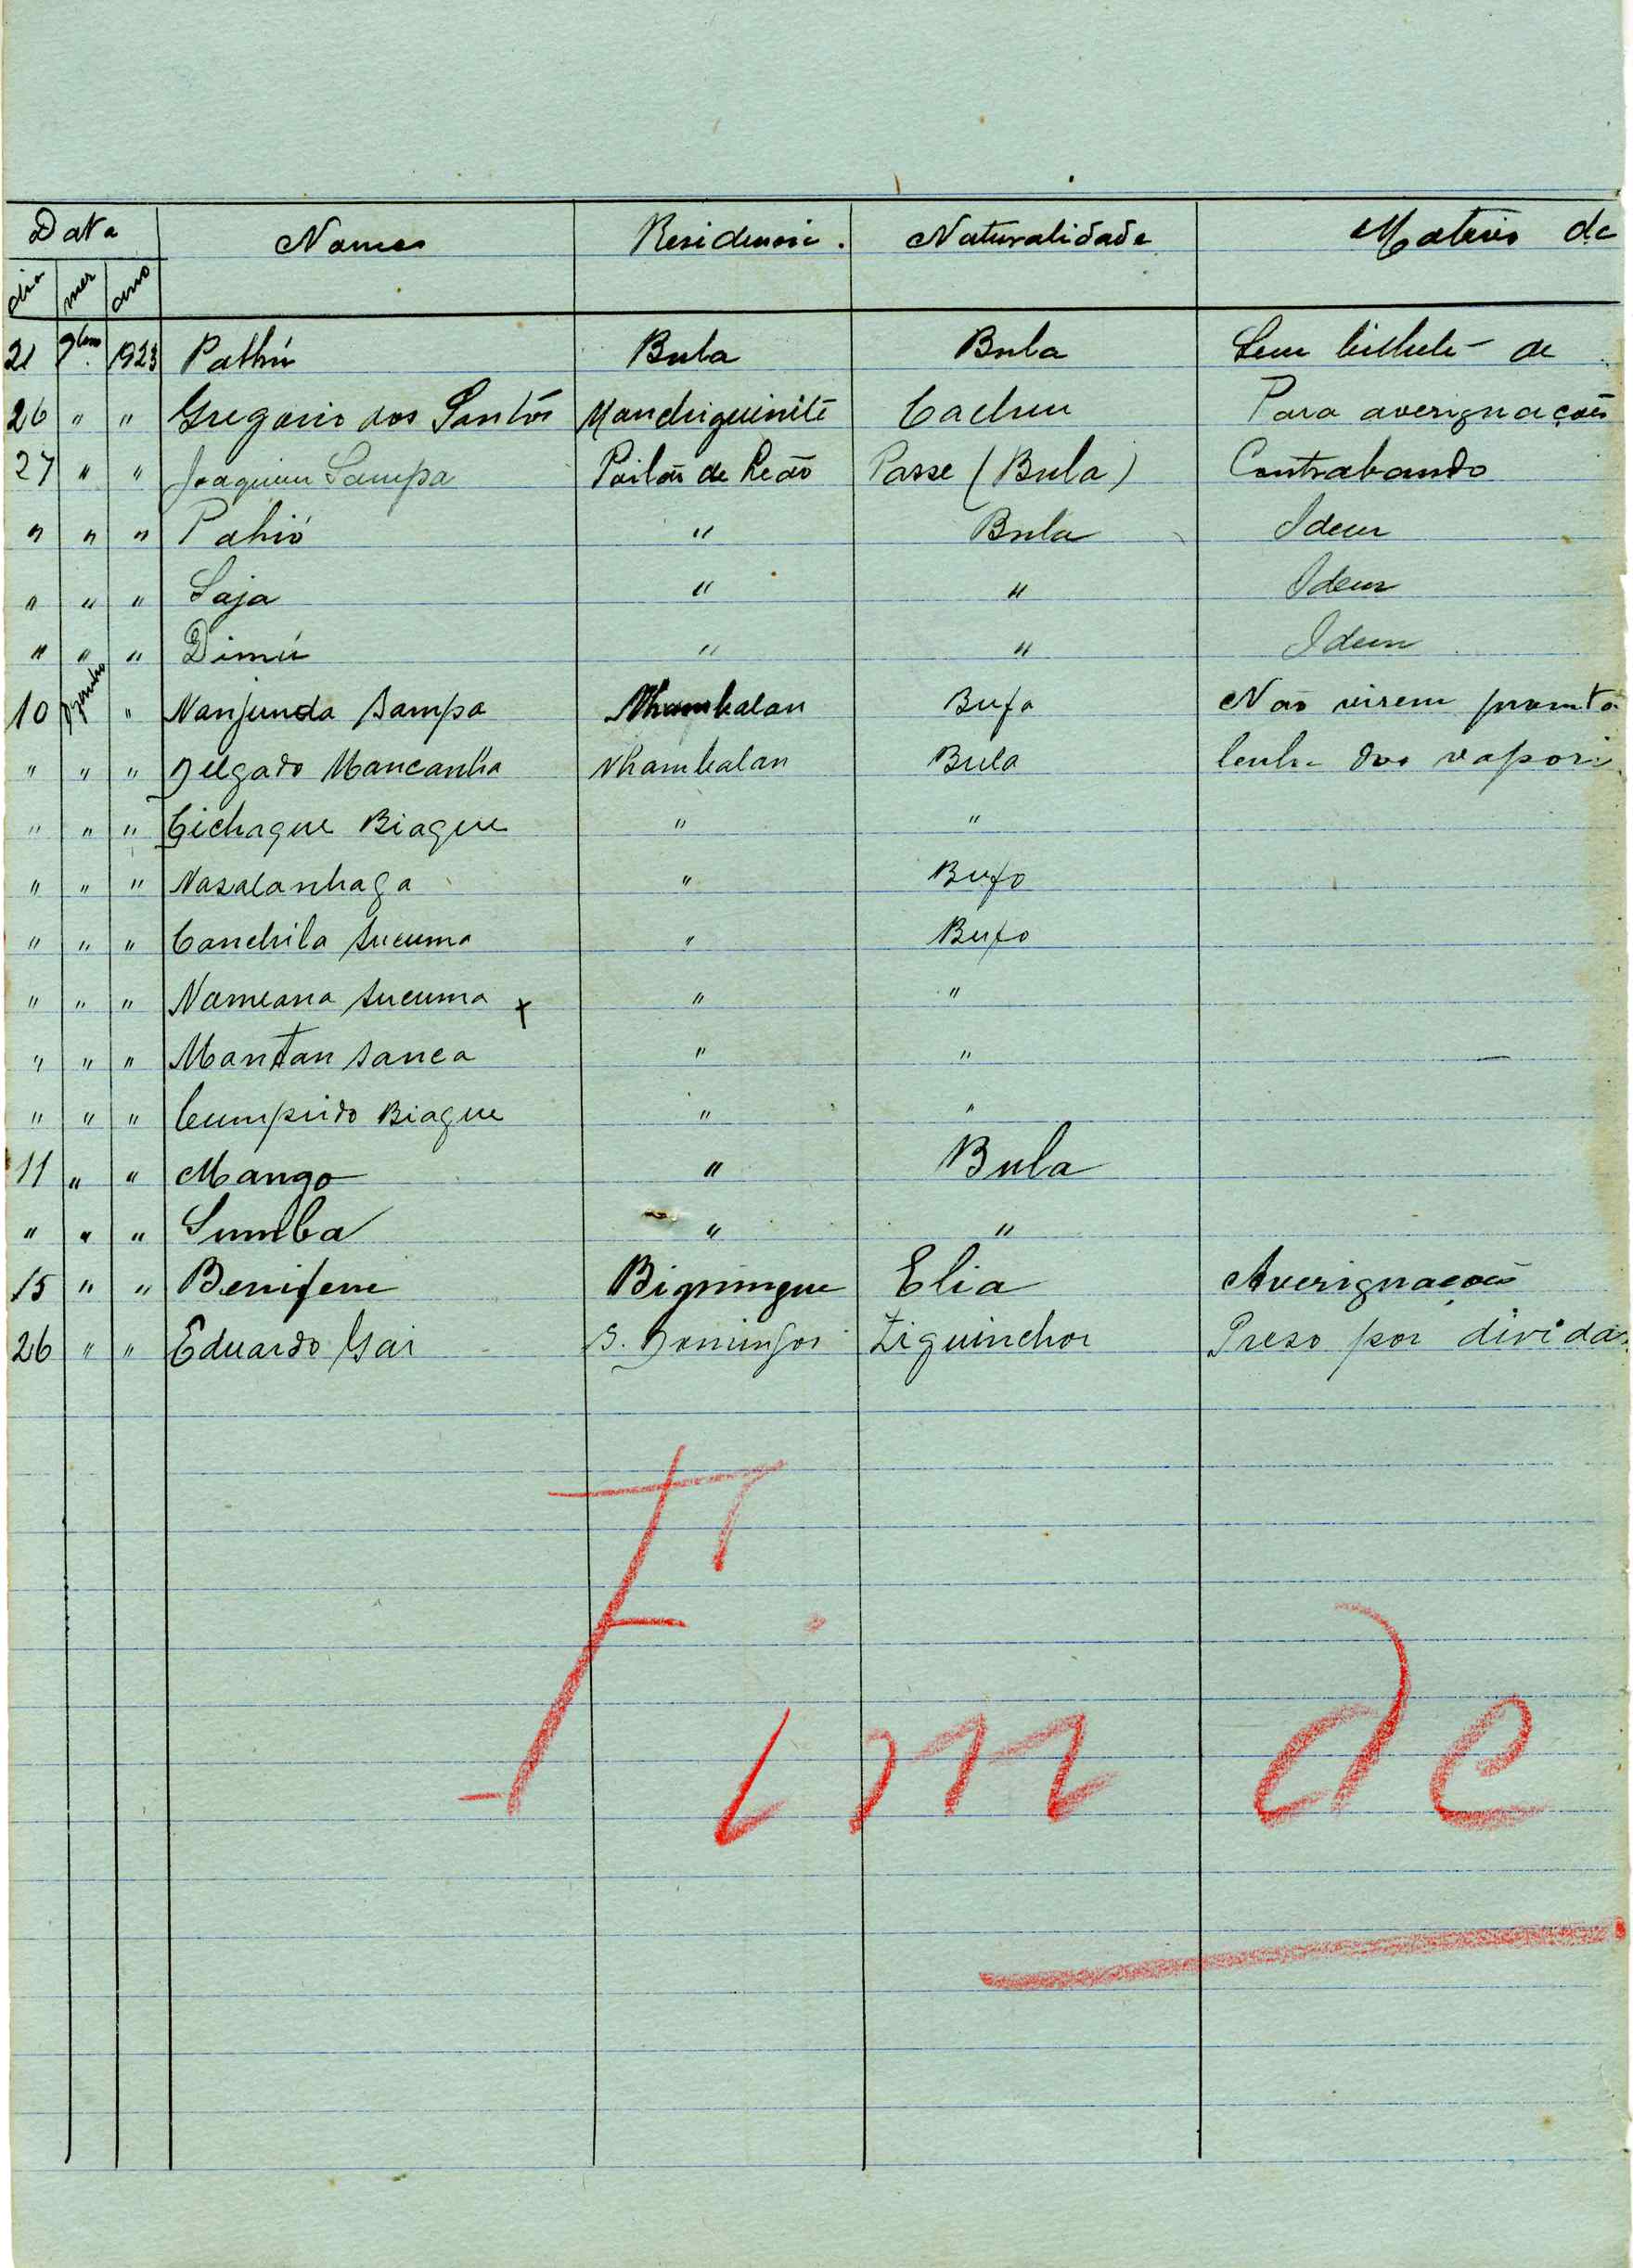 Data Nomes Residencia. Naturalidade Motivo de
dia mez ano
21 9bro 1923 Pathú Bula Bula Sem bilhete de
26 " " Gregorio dos Santos Manchiguinité Cacheu Para averiguações
27 " " Joaquim Sampa Poilão de Leão Passe (Bula) Contrabando
" " " Pahió " Bula Idem
" " " Saja " " Idem
" " " Dimú " " Idem
10 " Nanjunda Sampa Nhambalan Bufa Não virem
" " " Delgado Mancanha Nhambalan Bula
" " " Cichaque Biague " "
" " " Nasalanhaga " Bufo
" " " Canchila Sucuma " Bufo
" " " Nameana Sucuma x " "
" " " Mantan Sanca " "
" " " Cumprido Biague " "
11 " " Mango " Bula
" " " Sumba " "
15 " " Benifene Bigningue Elia Averiguações
26 " " Eduardo Gai S. Domingos Ziguinchor Preso por dividas
Fim de